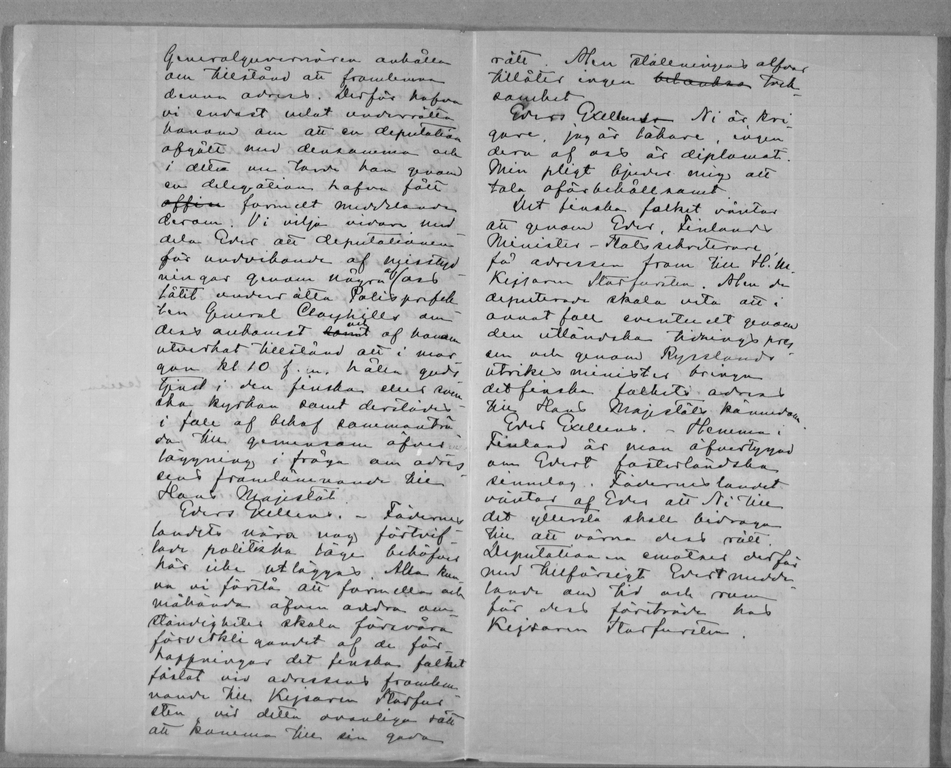 Generalguvernören anhålla
om tillstånd att framlemna
denna adress. Derför hafva
vi endast velat underrätta
honom om att en deputation
afgått med densamma och
i detta nu torde han genom
en delegation hafva fått
formelt meddelande
derom. Vi vilja vidare med
dela Eder att deputationen
för undvikande af misstyd
ningar genom några af oss
låtit underrätta Polisprefek
ten General Clayhills om
dess ankomst samt af honom
utverkat tillstånd att i mor
gon kl 10 f.m. hålla guds
tjenst i den finska eller sven
ska kyrkan samt derstädes
i fall af behof sammanträ
da till gemensam öfver
läggning i fråga om adres
sens framlämnande till
Hans Majestät
Eders Exellens. – Fädernes
landets nära nog förtvif
lade politiska läge behöfver
här icke utläggas. Alla kun
na vi förstå att formella och
måhända äfven andra om
ständigheter skola försvåra
förverkligandet af de för
hoppningar det finska folket
fästat vid adressens framlem
nande till Kejsaren Storfur
sten, vid detta ovanliga sätt
att komma till sin goda
rätt. Men ställningens allvar
tillåter ingen tvek
samhet
Eders Exellens Ni är kri
gare, jag är läkare, ingen
dera af oss är diplomat.
Min pligt bjuder mig att
tala oförbehållsamt
Det finska folket väntar
att genom Eder, Finlands
Minister-Statssekreterare,
få adressen fram till H. M.
Kejsaren Storfursten. Men de
deputerade skola veta att i
annat fall eventuelt genom
den utländska tidningspres
sen och genom Rysslands
utrikesminister bringa
det finska folkets adress
till Hans Majestäts kännedom.
Eder Exellens. – Hemma i
Finland är man öfvertygad
om Edert fosterländska
sinnelag. Fäderneslandet
väntar af Eder att Ni till
det yttersta skall bidraga
till att värna dess rätt.
Deputationen emotser derför
med tillförsigt Edert medde
lande om tid och rum
för dess företräde hos
Kejsaren Storfursten.